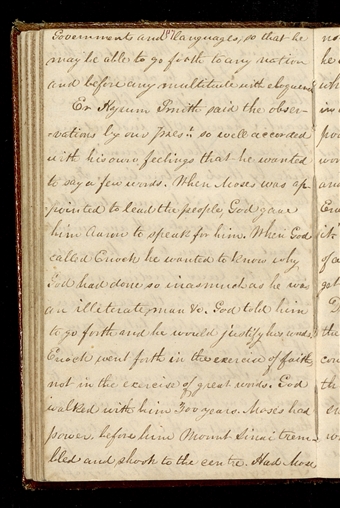 Governments and languages, so that he
may be able to go forth to any nation
and before any multitude with eloquence
Er Hyrum Smith said the obser-
vations by our Prest. so well accorded
with his own feelings that he wanted
to say a few words. When Moses was ap
pointed to lead the people, God gave
him Aaron to speak for him. When God
called Enoch he wanted to know why
God had done so inasmuch as he was
an illiterate man &c. God told him
to go forth and he would justify his words
Enoch went forth in the exercise of faith
not in the exercise of great words. God
walked with him 300 years. Moses had
power, before him Mount Sinai trem-
bled and shook to the centre. Had Mose